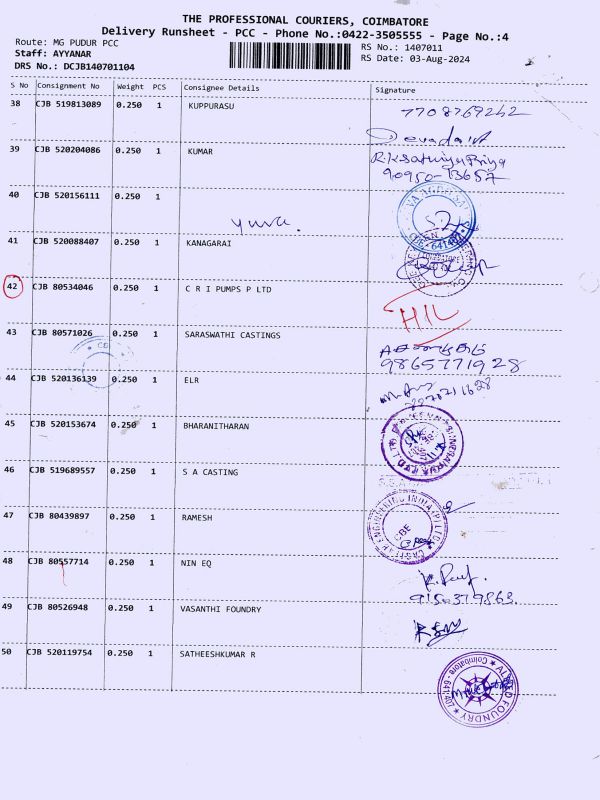 THE PROFESSIONAL COURIERS, COIMBATORE
Delivery Runsheet - PCC - Phone No.:0422-3505555 - Page No.:4
Route: MG PUDUR PCC
RS No.: 1407011
Staff: AYYANAR
RS Date: 03-Aug-2024
DRS No.: DCJB140701104
S No Consignment No Weight PCS Consignee Details Signature
38 CJB 519813089 0.250 1 KUPPURASU
7708769242
39 CJB 520204086 0.250 1 KUMAR
90950-13657
40 CJB 520156111 0.250 1
Yuva.
41 CJB 520088407 0.250 1 KANAGARAI
42 CJB 80534046 0.250 1 C R I PUMPS P LTD
HIL
43 CJB 80571026 0.250 1 SARASWATHI CASTINGS
9865771928
44 CJB 520136139 0.250 1 ELR
45 CJB 520153674 0.250 1 BHARANITHARAN
46 CJB 519689557 0.250 1 S A CASTING
47 CJB 80439897 0.250 1 RAMESH
CBE
48 CJB 80557714 0.250 1 NIN EQ
49 CJB 80526948 0.250 1 VASANTHI FOUNDRY
50 CJB 520119754 0.250 1 SATHEESHKUMAR R